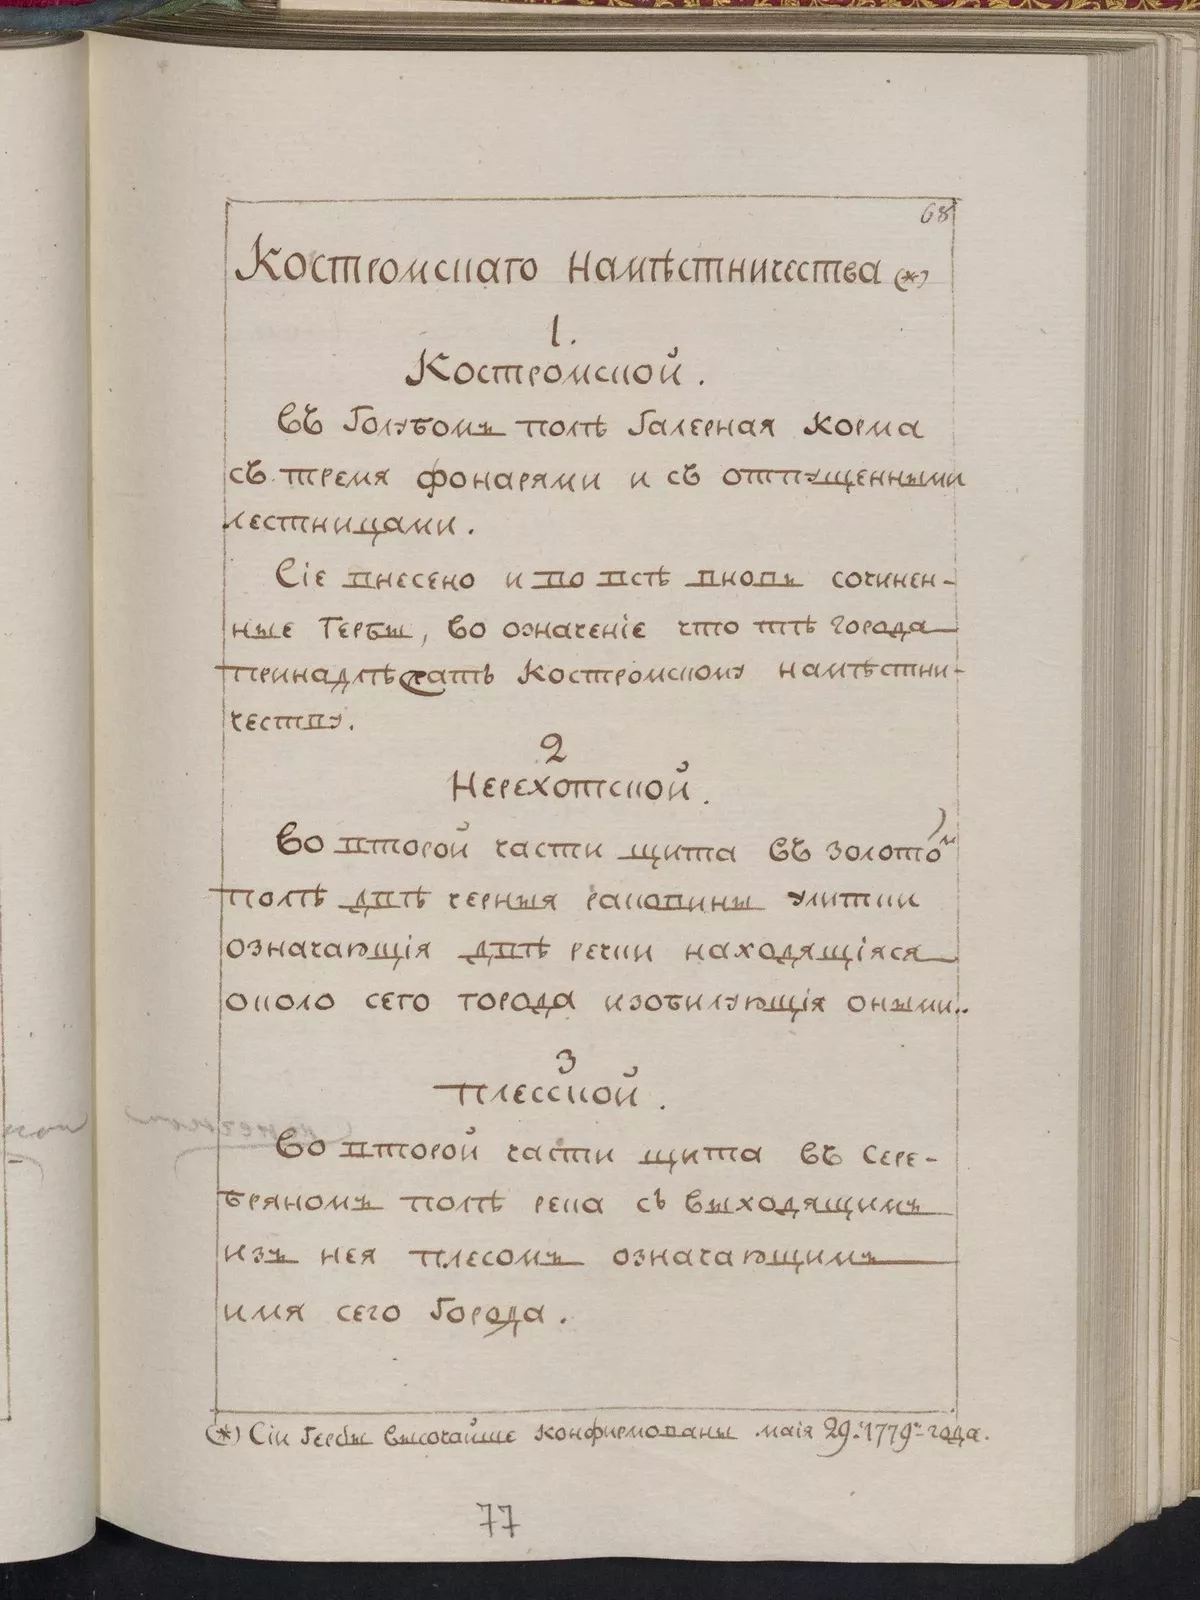 68
Костромскаго намѣстничества (*)
1.
Костромской.
въ Голубомъ полѣ Галерная Корма
съ тремя фонарями и съ отпущенными
лестницами.
Сіе внесено и во всѣ вновь сочинен-
ные Гербы, во означеніе что тѣ города
принадлѣжатъ Костромскому намѣстни-
честву.
2
Нерехотской.
Во второй части щита въ золотомъ
полѣ двѣ черныя раковины улитки
означающія двѣ речки находящіяся
около сего города изобилующія оными..
3
Плесской.
Во второй части щита въ Сере-
бряномъ полѣ река съ выходящимъ
изъ нея плесомъ означающимъ
имя сего Города.
(*) Сіи Гербы высочайше конфирмованы маія 29.го 1779.го года.
77